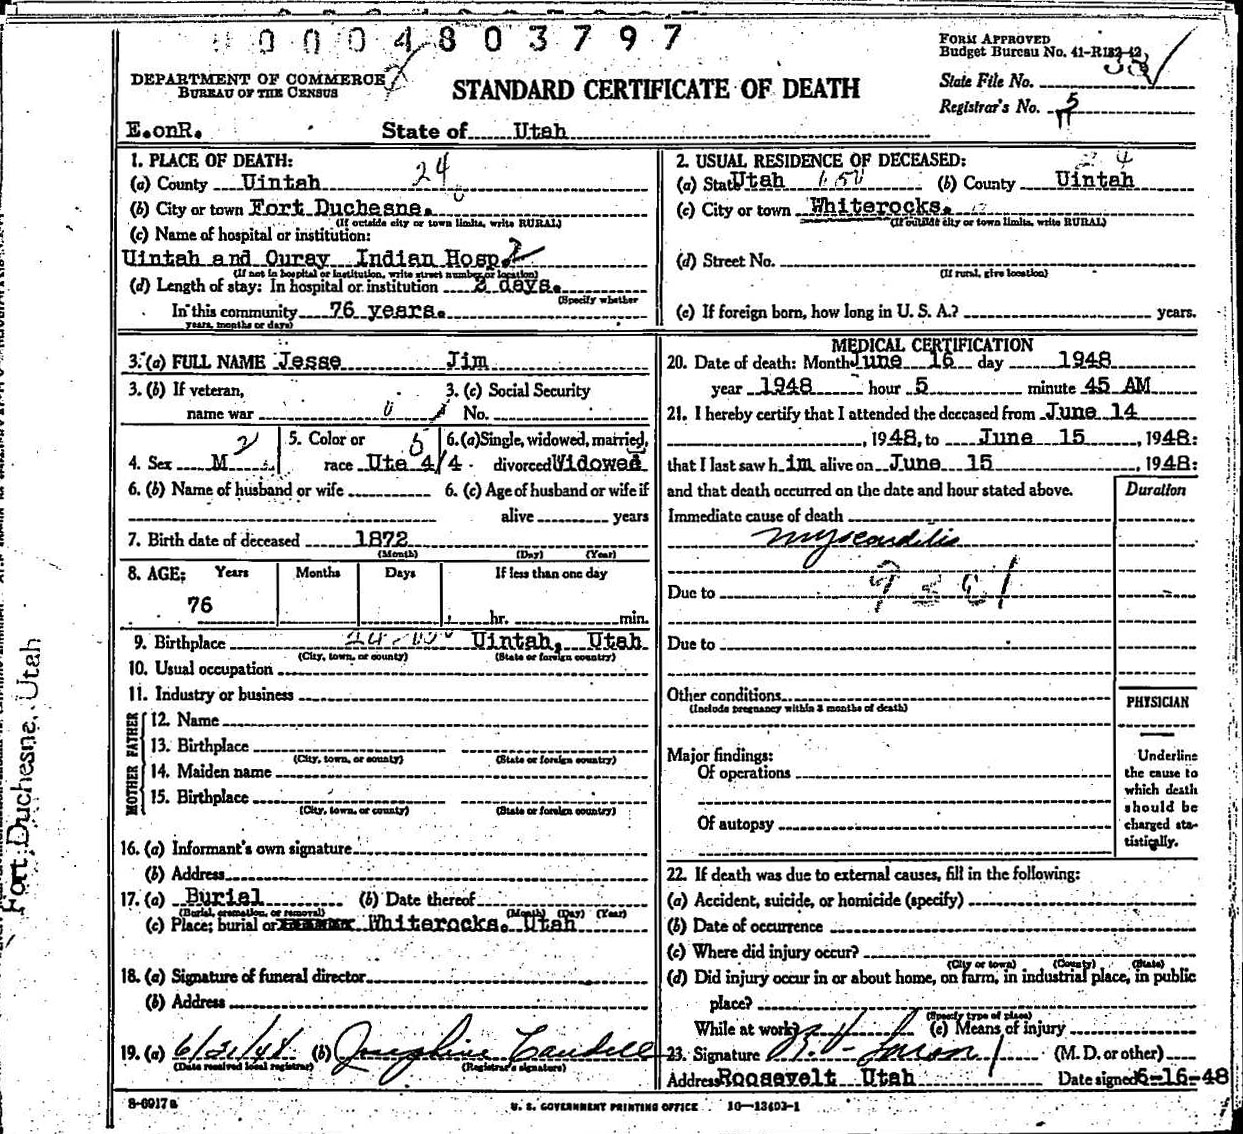 00004803797
FORM APPROVED
Budget Bureau No. 41-R132-42
DEPARTMENT OF COMMERCE
BUREAU OF THE CENSUS
STANDARD CERTIFICATE OF DEATH
State File No. 33
Registrar's No. 5
E.onR. State of Utah
1. PLACE OF DEATH: 24
(a) County Uintah
(b) City or town Fort Duchesne.
(If outside city or town limits, write RURAL)
(c) Name of hospital or institution:
Uintah and Ouray Indian Hosp.
(If not in hospital or institution, write street number or location)
(d) Length of stay: In hospital or institution 2 days.
(Specify whether
In this community 76 years.
years, months or days)
2. USUAL RESIDENCE OF DECEASED: 24
(a) State Utah (b) County Uintah
(c) City or town Whiterocks.
(If outside city or town limits, write RURAL)
(d) Street No.
(If rural, give location)
(e) If foreign born, how long in U. S. A.? years.
3. (a) FULL NAME Jesse Jim
3. (b) If veteran, 3. (c) Social Security
name war No.
4. Sex M 5. Color or race Ute 4/4 6. (a) Single, widowed, married, divorced Widowed
6. (b) Name of husband or wife 6. (c) Age of husband or wife if
alive years
7. Birth date of deceased 1872
(Month) (Day) (Year)
8. AGE: Years Months Days If less than one day
76 hr. min.
9. Birthplace Uintah, Utah
(City, town, or county) (State or foreign country)
10. Usual occupation
11. Industry or business
FATHER
12. Name
13. Birthplace
(City, town, or county) (State or foreign country)
MOTHER
14. Maiden name
15. Birthplace
(City, town, or county) (State or foreign country)
16. (a) Informant's own signature
(b) Address
17. (a) Burial (b) Date thereof
(Burial, cremation, or removal) (Month) (Day) (Year)
(c) Place; burial or Whiterocks. Utah
18. (a) Signature of funeral director
(b) Address
19. (a) 6/21/48 (b) Josephine Caudell
(Date received local registrar) (Registrar's signature)
MEDICAL CERTIFICATION
20. Date of death: Month June 16 day 1948
year 1948 hour 5 minute 45 AM
21. I hereby certify that I attended the deceased from June 14
, 1948, to June 15, 1948:
that I last saw him alive on June 15, 1948:
and that death occurred on the date and hour stated above.
Duration
Immediate cause of death
myocarditis
Due to
Due to
Other conditions
(Include pregnancy within 3 months of death)
PHYSICIAN
Major findings:
Of operations
Of autopsy
Underline
the cause to
which death
should be
charged sta-
tistically.
22. If death was due to external causes, fill in the following:
(a) Accident, suicide, or homicide (specify)
(b) Date of occurrence
(c) Where did injury occur?
(City or town) (County) (State)
(d) Did injury occur in or about home, on farm, in industrial place, in public
place?
(Specify type of place)
While at work? (e) Means of injury
23. Signature (M. D. or other)
Address Roosevelt Utah Date signed 6-16-48
8-6917a
U. S. GOVERNMENT PRINTING OFFICE 16—13403-1
Fort Duchesne, Utah